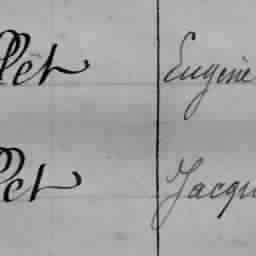 llet Eugène
llet Jacqu